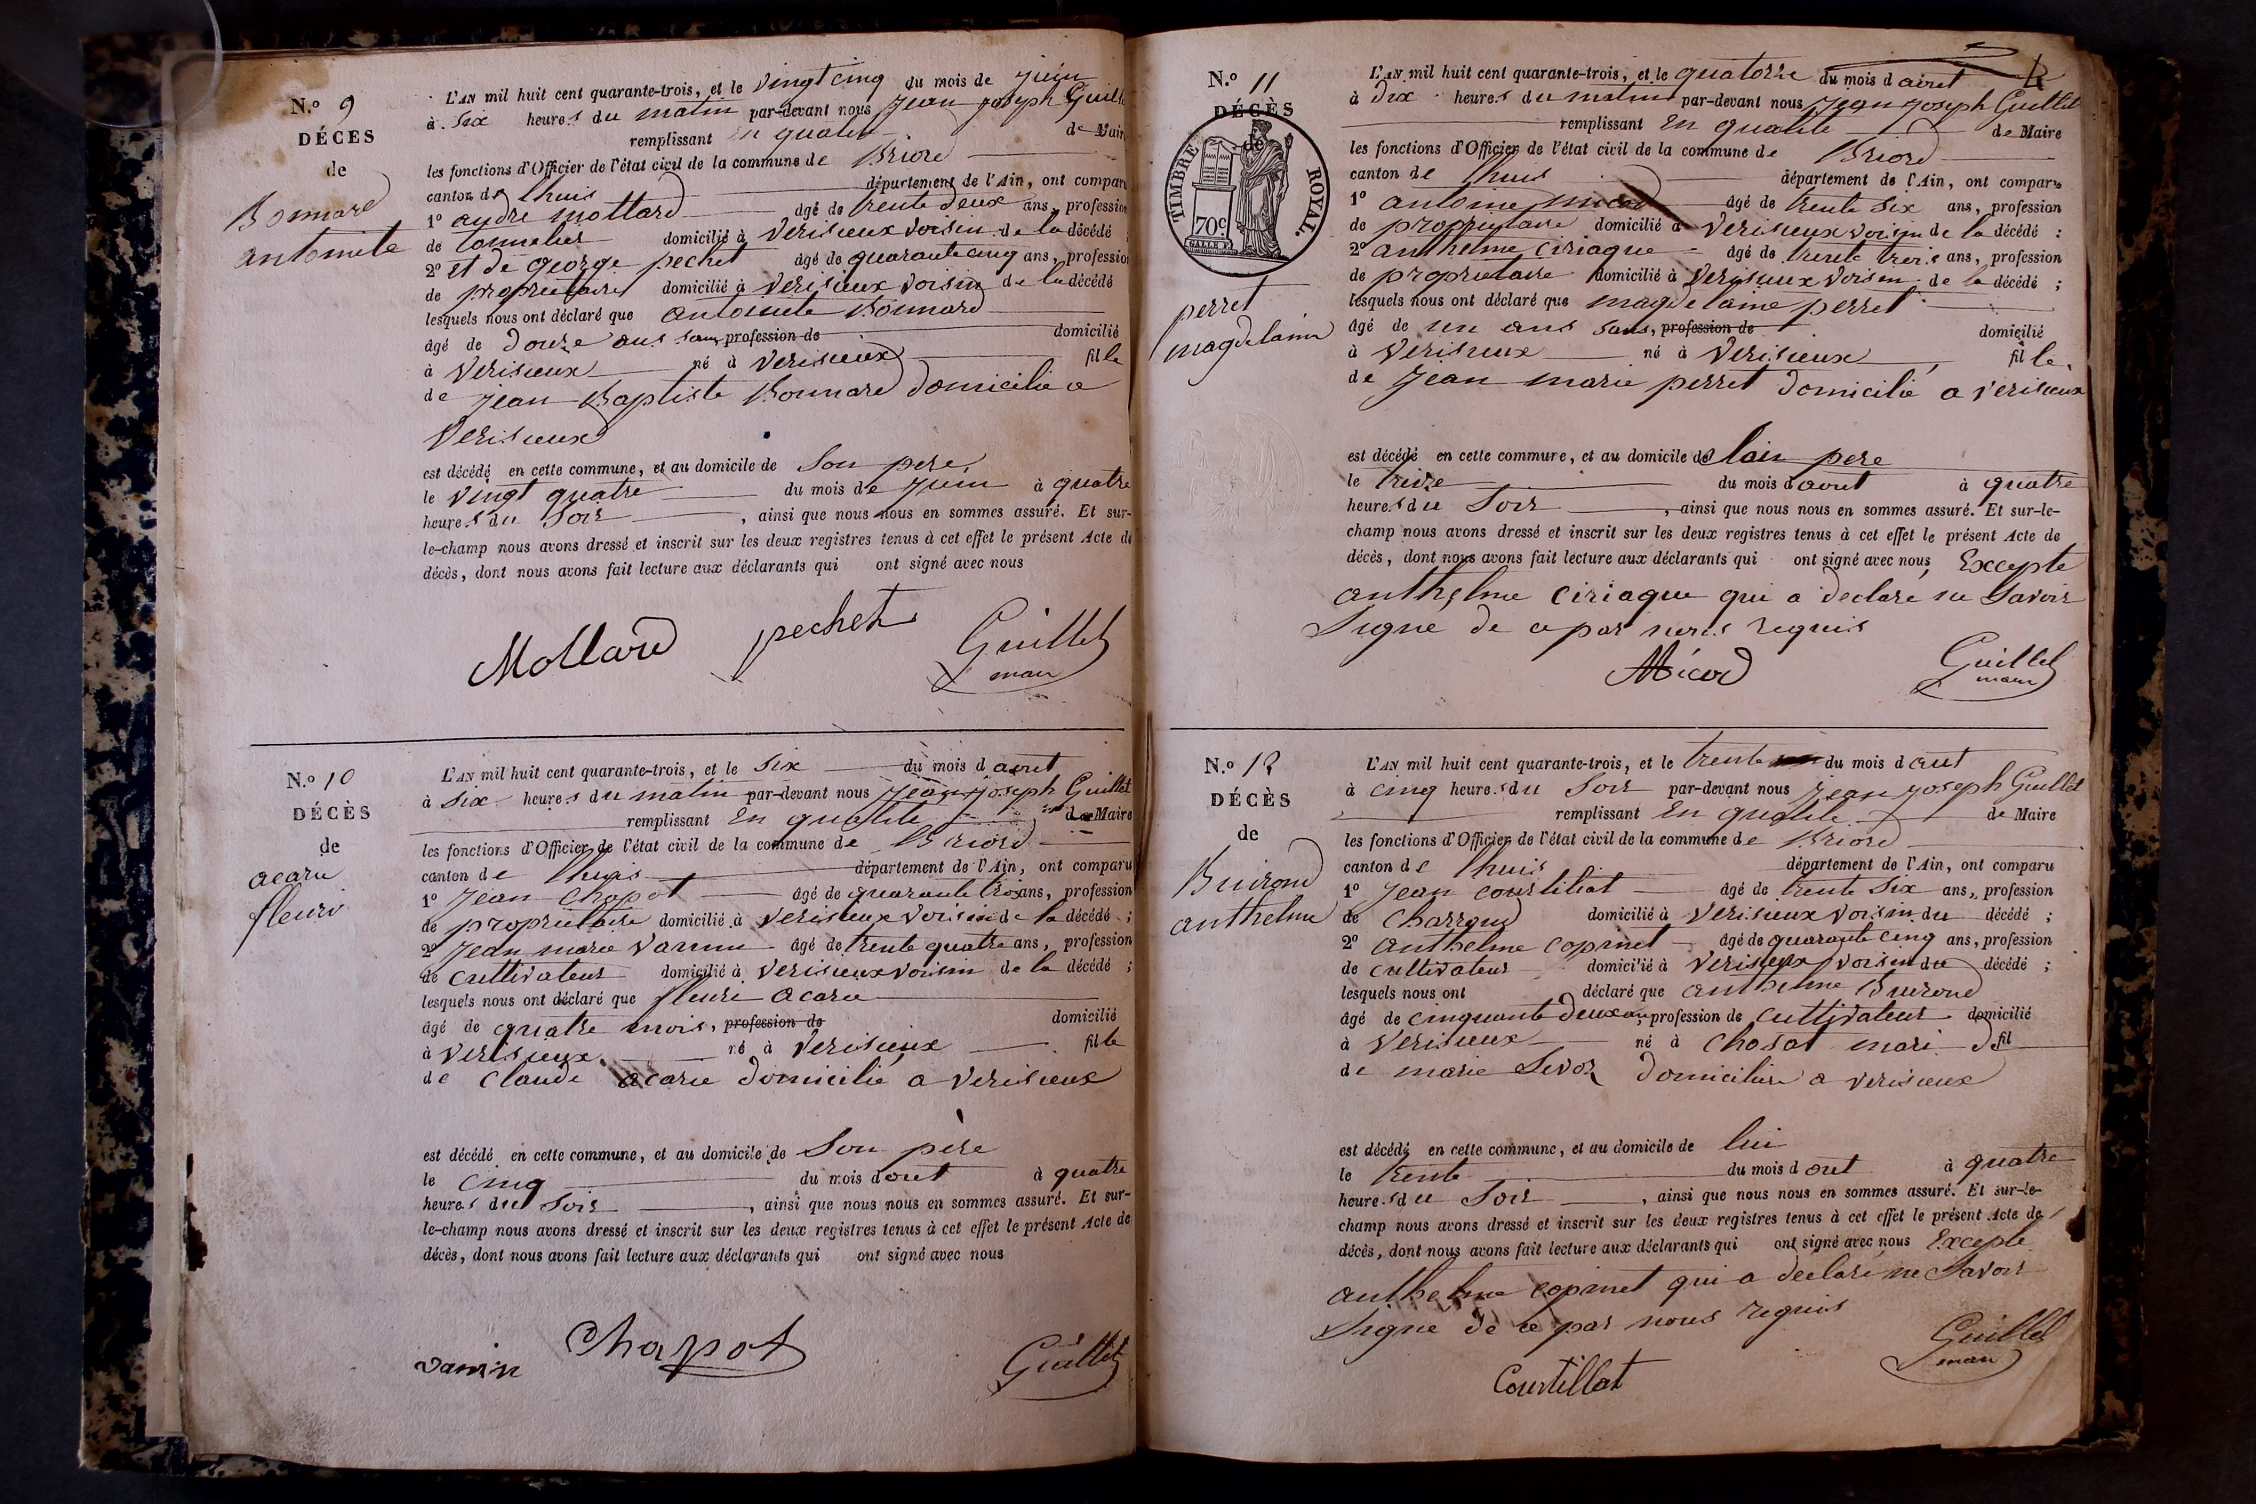 N.º 9
DÉCES
de
Bonnard
antoinete
L'AN mil huit cent quarante-trois, et le vingt cinq du mois de juin
à six heures du matin par-devant nous jean joseph Guill
remplissant en qualité de Mair
les fonctions d'Officier de l'état civil de la commune de Briord
canton de lhuis département de l'Ain, ont compar
1º andre mollard âgé de trente deux ans, profession
de tonnelier domicilié à verisieux voisin de la décédé ;
2º et de george pechet âgé de quarante cinq ans, profession
de proprietaire domicilié à verisieux voisin de la décédé
lesquels nous ont déclaré que antoinete Bonnard
âgé de douze ans sans profession de domicilié
à verisieux né à verisieux fille
de jean Baptiste Bonnard domicilié a
verisieux
est décédé en cette commune, et au domicile de son pere
le vingt quatre du mois de juin à quatre
heures du soir , ainsi que nous nous en sommes assuré. Et sur-
le-champ nous avons dressé et inscrit sur les deux registres tenus à cet effet le présent Acte de
décès, dont nous avons fait lecture aux déclarants qui ont signé avec nous
Mollard pechet Guillet
maire
N.º 10
DÉCÈS
de
acarie
fleuri
L'AN mil huit cent quarante-trois, et le six du mois d aout
à six heures du matin par-devant nous jean joseph Guillet
remplissant en qualité de Maire
les fonctions d'Officier de l'état civil de la commune de Briord
canton de lhuis département de l'Ain, ont comparu
1º jean chapot âgé de quarante trois ans, profession
de proprietaire domicilié à verisieux voisin de la décédé ;
2º jean marie vannin âgé de trente quatre ans, profession
de cultivateur domicilié à verisieux voisin de la décédé ;
lesquels nous ont déclaré que fleuri acarie
âgé de quatre mois, profession de domicilié
à verisieux né à verisieux fille
de claude acarie domicilié a verisieux
est décédé en cette commune, et au domicile de son père
le cinq du mois d out à quatre
heures du soir , ainsi que nous nous en sommes assuré. Et sur-
le-champ nous avons dressé et inscrit sur les deux registres tenus à cet effet le présent Acte de
décès, dont nous avons fait lecture aux déclarants qui ont signé avec nous
vanin Chapot Guillet
N.º 11
DÉCÈS
de
TIMBRE ROYAL.
70c
perret
magdelaine
L'AN mil huit cent quarante-trois, et le quatorze du mois d aout
à dix heures du matin par-devant nous jean joseph Guillet
remplissant en qualité de Maire
les fonctions d'Officier de l'état civil de la commune de Briord
canton de lhuis département de l'Ain, ont comparu
1º antoine micod âgé de trente six ans, profession
de proprietaire domicilié à verisieux voisin de la décédé :
2º anthelme ciriaque âgé de trente trois ans, profession
de proprietaire domicilié à verisieux voisin de la décédé ;
lesquels nous ont déclaré que magdelaine perret
âgé de un ans sans, profession de domicilié
à verisieux né à verisieux fille
de jean marie perret domicilié a verisieux
est décédé en cette commune, et au domicile de son pere
le treize du mois d aout à quatre
heures du soir , ainsi que nous nous en sommes assuré. Et sur-le-
champ nous avons dressé et inscrit sur les deux registres tenus à cet effet le présent Acte de
décès, dont nous avons fait lecture aux déclarants qui ont signé avec nous Excepte
anthelme ciriaque qui a declaré ne savoir
signe de ce par nous requis
Micod Guillet
maire
N.º 12
DÉCÈS
de
Buirond
anthelme
L'AN mil huit cent quarante-trois, et le trente du mois d aut
à cinq heures du soir par-devant nous jean joseph Guillet
remplissant en qualité de Maire
les fonctions d'Officier de l'état civil de la commune de Briord
canton de lhuis département de l'Ain, ont comparu
1º jean courtiliat âgé de trente six ans, profession
de charrond domicilié à verisieux voisin du décédé ;
2º anthelme copinet âgé de quarante cinq ans, profession
de cultivateur domicilié à verisieux voisin du décédé ;
lesquels nous ont déclaré que anthelme Buirond
âgé de cinquante deux ans, profession de cultivateur domicilié
à verisieux né à chosat mari de fil
de marie sevoz domiciliere a verisieux
est décédé en cette commune, et au domicile de lui
le trente du mois d out à quatre
heures du soir , ainsi que nous nous en sommes assuré. Et sur-le-
champ nous avons dressé et inscrit sur les deux registres tenus à cet effet le présent Acte de
décès, dont nous avons fait lecture aux déclarants qui ont signé avec nous Excepte
anthelme copinet qui a déclaré ne savoir
signe de ce par nous requis
Courtillat Guillet
maire